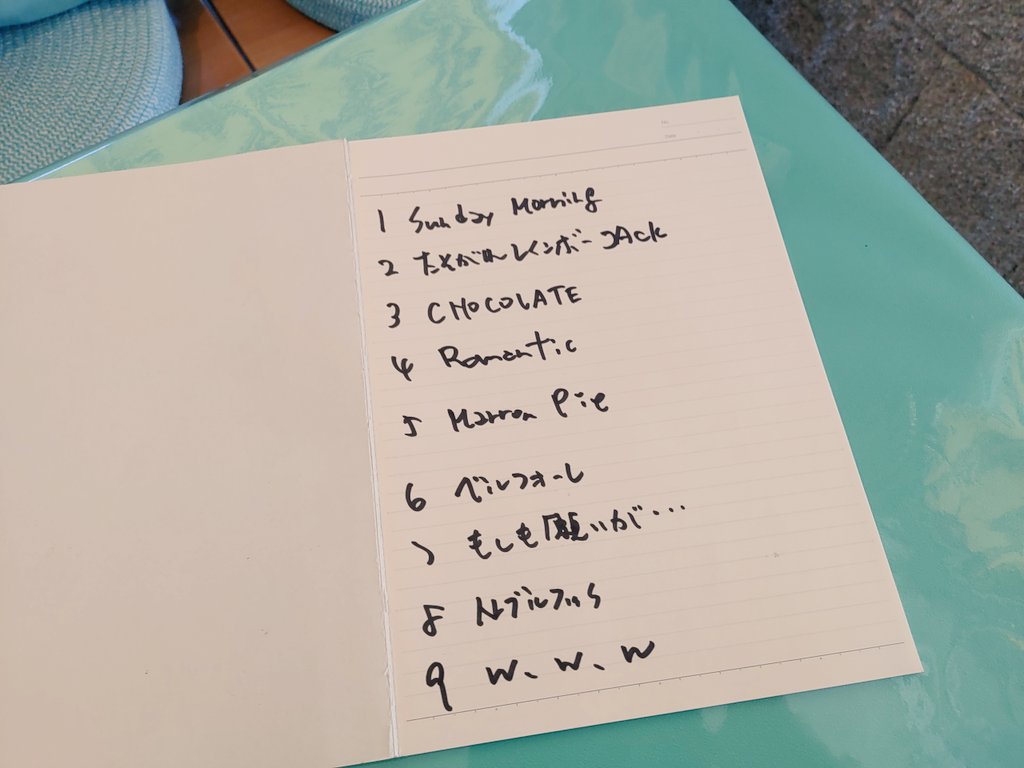 No.
Date
1 Sunday Morning
2 たそがれレインボー JAck
3 CHOCOLATE
4 Romantic
5 Marron Pie
6 ベルフォーレ
7 もしも願いが・・・
8
9 W、W、W